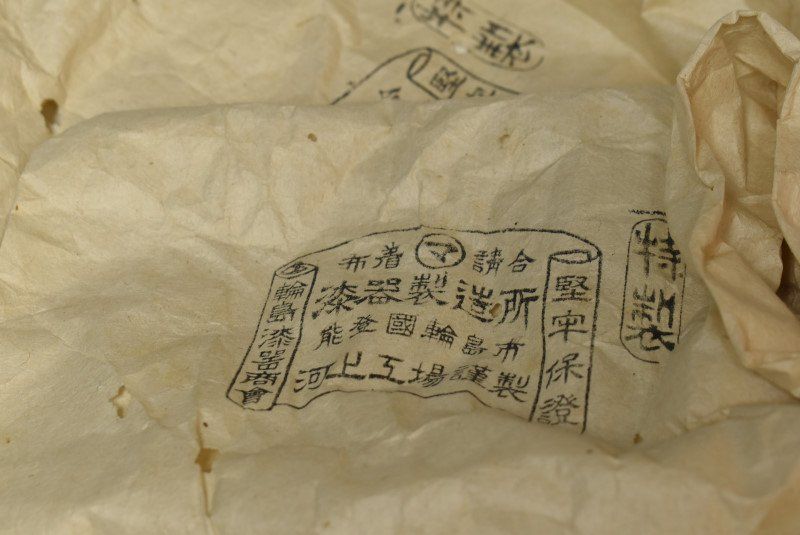 特製
堅
特製
堅牢保證
布着㋮請合
漆器製造所
能登國輪島布
河上工場謹製
輪島漆器商會